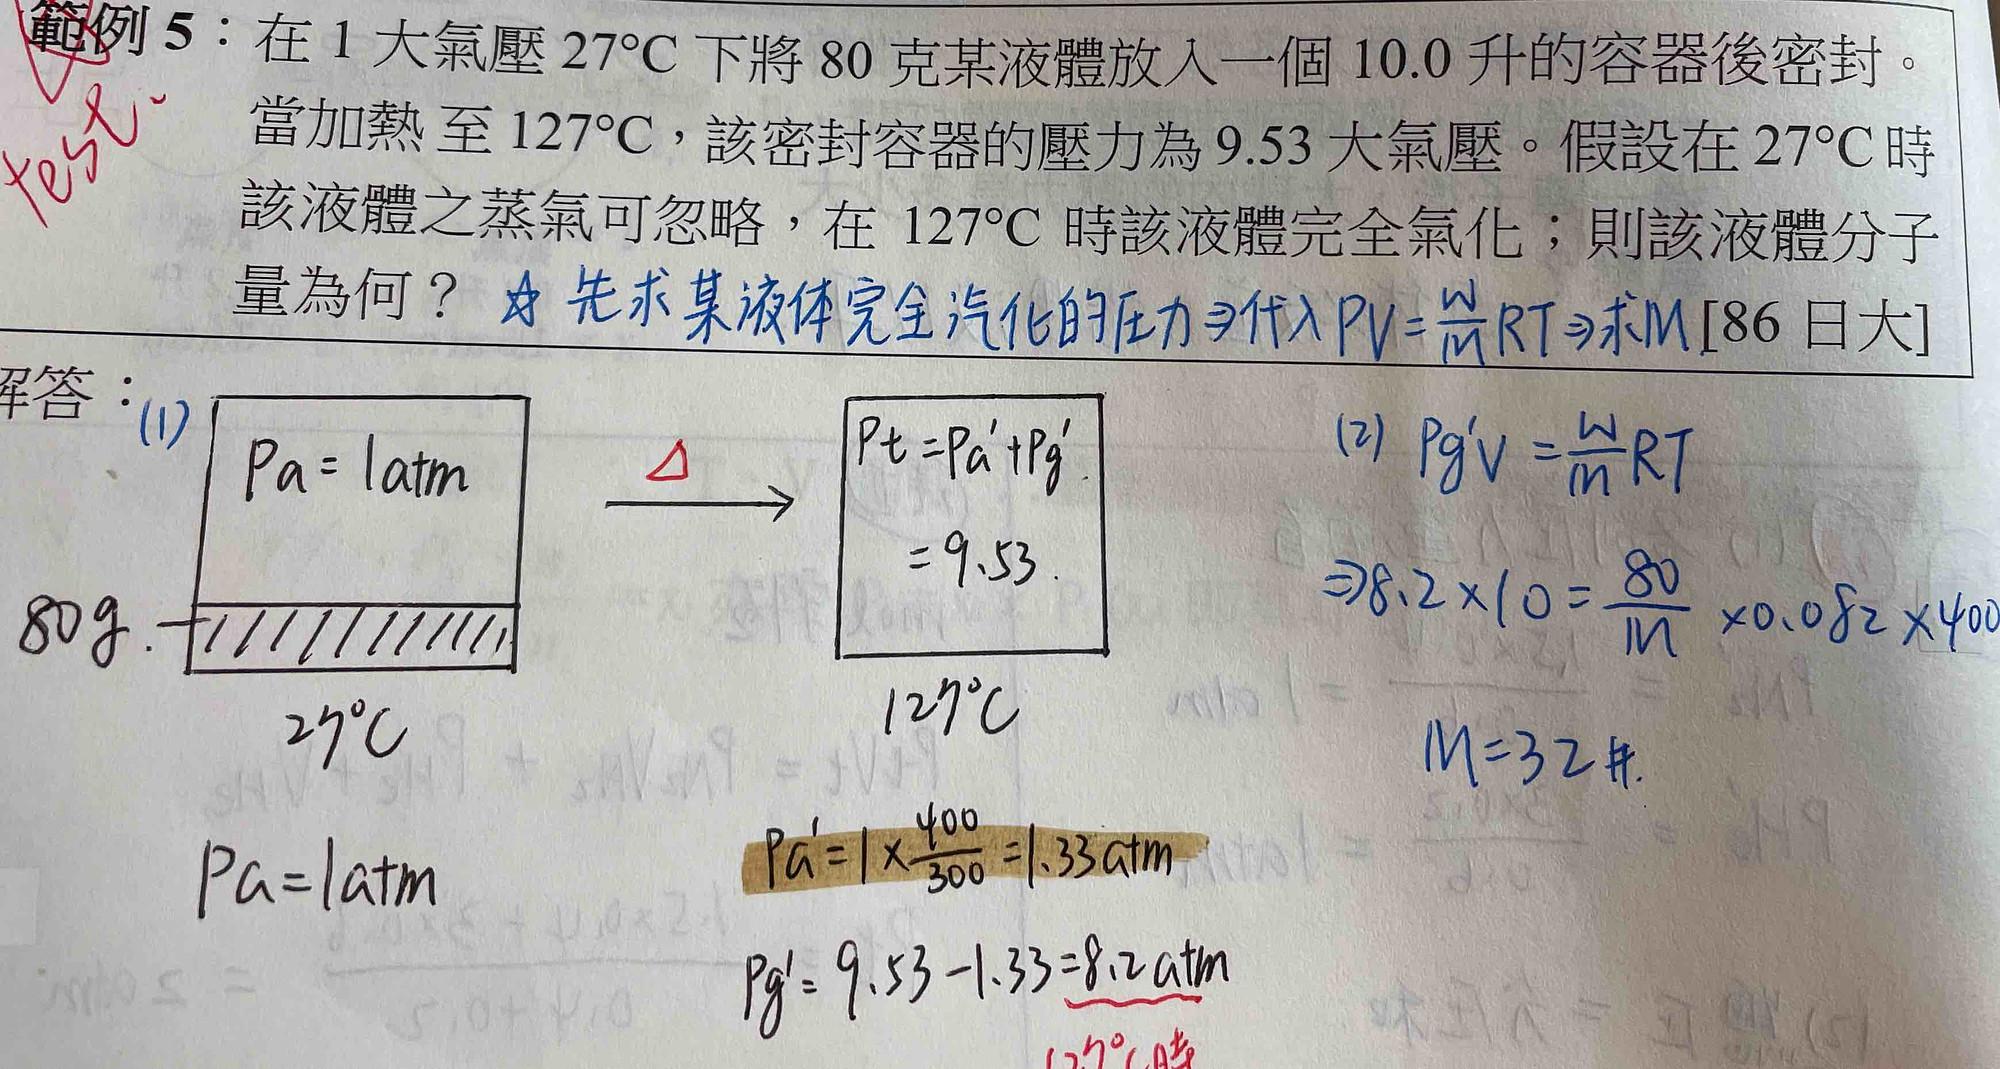 範例 5：在 1 大氣壓 27°C 下將 80 克某液體放入一個 10.0 升的容器後密封。
當加熱 至 127°C，該密封容器的壓力為 9.53 大氣壓。假設在 27°C 時
該液體之蒸氣可忽略，在 127°C 時該液體完全氣化；則該液體分子
量為何？ ☆ 先求某液体完全汽化的压力⇒代入 PV=W/M RT⇒求M [86 日大]
test.
解答：
(1)
Pa = 1atm
80g.
27°C
Pa=1atm
Δ
Pt = Pa'+Pg'.
= 9.53.
127°C
Pa'=1×400/300=1.33atm
Pg'= 9.53-1.33=8.2atm
127°C時
(2) Pg'V = W/M RT
⇒8.2×10=80/M ×0.082×400
M=32#.